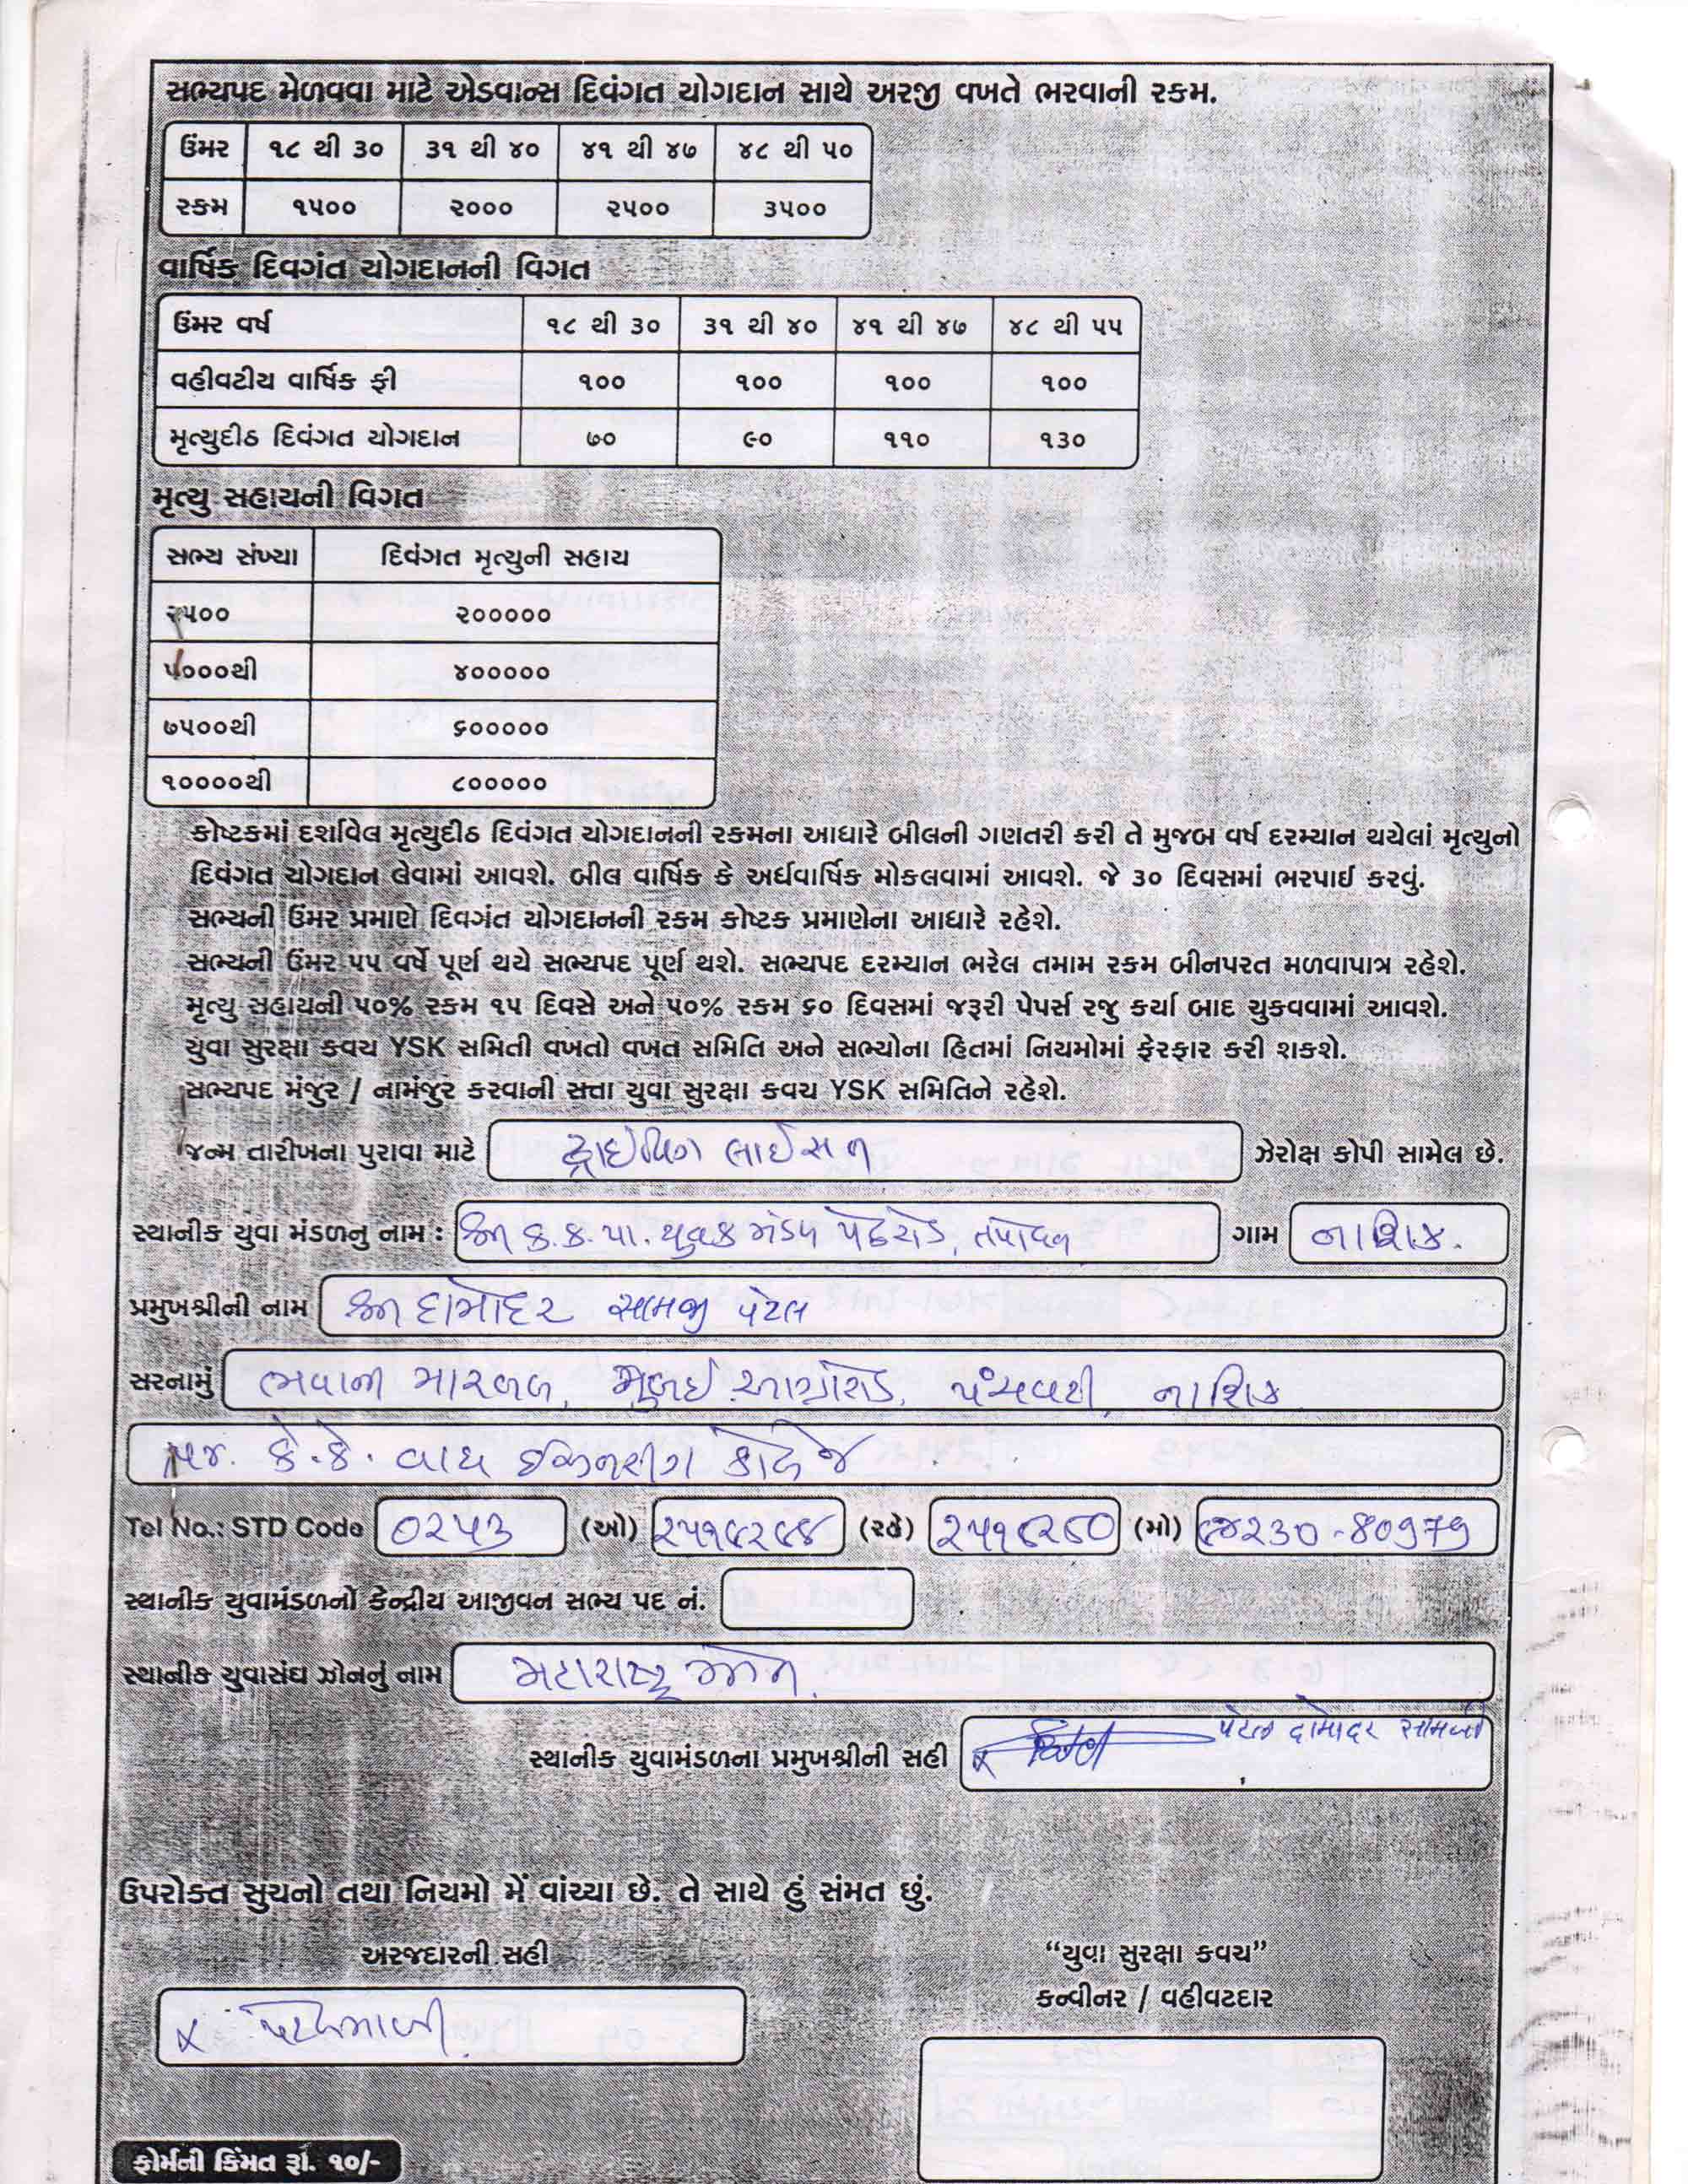 સભ્યપદ મેળવવા માટે એડવાન્સ દિવંગત યોગદાન સાથે અરજી વખતે ભરવાની રકમ.
ઉંમર ૧૮ થી ૩૦ ૩૧ થી ૪૦ ૪૧ થી ૪૭ ૪૮ થી ૫૦
રકમ ૧૫૦૦ ૨૦૦૦ ૨૫૦૦ ૩૫૦૦
વાર્ષિક દિવગંત યોગદાનની વિગત
ઉંમર વર્ષ ૧૮ થી ૩૦ ૩૧ થી ૪૦ ૪૧ થી ૪૭ ૪૮ થી ૫૫
વહીવટીય વાર્ષિક ફી ૧૦૦ ૧૦૦ ૧૦૦ ૧૦૦
મૃત્યુદીઠ દિવંગત યોગદાન ૭૦ ૯૦ ૧૧૦ ૧૩૦
મૃત્યુ સહાયની વિગત
સભ્ય સંખ્યા દિવંગત મૃત્યુની સહાય
૨૫૦૦ ૨૦૦૦૦૦
૫૦૦૦થી ૪૦૦૦૦૦
૭૫૦૦થી ૬૦૦૦૦૦
૧૦૦૦૦થી ૮૦૦૦૦૦
કોષ્ટકમાં દર્શાવેલ મૃત્યુદીઠ દિવંગત યોગદાનની રકમના આધારે બીલની ગણતરી કરી તે મુજબ વર્ષ દરમ્યાન થયેલાં મૃત્યુનો
દિવંગત યોગદાન લેવામાં આવશે. બીલ વાર્ષિક કે અર્ધવાર્ષિક મોકલવામાં આવશે. જે ૩૦ દિવસમાં ભરપાઈ કરવું.
સભ્યની ઉંમર પ્રમાણે દિવગંત યોગદાનની રકમ કોષ્ટક પ્રમાણેના આધારે રહેશે.
સભ્યની ઉંમર ૫૫ વર્ષે પૂર્ણ થયે સભ્યપદ પૂર્ણ થશે. સભ્યપદ દરમ્યાન ભરેલ તમામ રકમ બીનપરત મળવાપાત્ર રહેશે.
મૃત્યુ સહાયની ૫૦% રકમ ૧૫ દિવસે અને ૫૦% રકમ ૬૦ દિવસમાં જરૂરી પેપર્સ રજુ કર્યા બાદ ચુકવવામાં આવશે.
યુવા સુરક્ષા કવચ YSK સમિતી વખતો વખત સમિતિ અને સભ્યોના હિતમાં નિયમોમાં ફેરફાર કરી શકશે.
સભ્યપદ મંજુર / નામંજુર કરવાની સત્તા યુવા સુરક્ષા કવચ YSK સમિતિને રહેશે.
જન્મ તારીખના પુરાવા માટે ડ્રાઈવિંગ લાઈસન ઝેરોક્ષ કોપી સામેલ છે.
સ્થાનીક યુવા મંડળનુ નામ : શ્રી ક.ક.પા. યુવક મંડળ પેઠરોડ, તપોવન ગામ નાશિક.
પ્રમુખશ્રીની નામ શ્રી દામોદર સામજી પટેલ
સરનામું ભવાની મારબલ, મુંબઈ આગ્રારોડ, પંચવટી, નાશિક
કે.કે. વાઘ કોલેજ
Tel No.: STD Code ૦૨૫૩ (ઓ) (રહે) (મો)
સ્થાનીક યુવામંડળનો કેન્દ્રીય આજીવન સભ્ય પદ નં.
સ્થાનીક યુવાસંઘ ઝોનનું નામ મહારાષ્ટ્ર ઝોન
સ્થાનીક યુવામંડળના પ્રમુખશ્રીની સહી પટેલ દામોદર સામજી
ઉપરોક્ત સુચનો તથા નિયમો મેં વાંચ્યા છે. તે સાથે હું સંમત છું.
અરજદારની સહી
“યુવા સુરક્ષા કવચ”
કન્વીનર / વહીવટદાર
ફોર્મની કિંમત રૂા. ૧૦/-